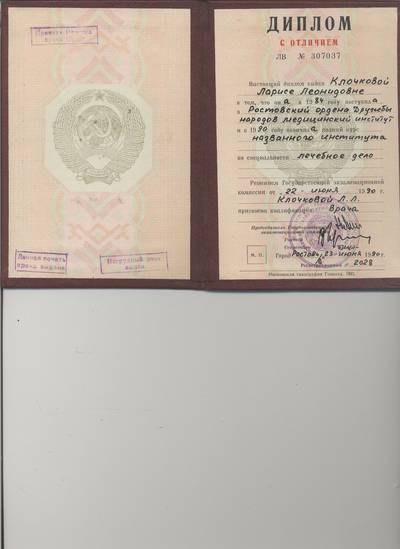 Принята Присяга
врача
Личная печать
врача выдана
Нагрудный знак
выдан
ДИПЛОМ
С ОТЛИЧИЕМ
ЛВ № 307037
Настоящий диплом выдан Клочковой
Ларисе Леонидовне
в том, что она в 1984 году поступила в
Ростовский ордена Дружбы
народов медицинский институт
и в 1990 году окончила полный курс
названного института
по специальности лечебное дело
Решением Государственной экзаменационной
комиссии от 22 июня 1990 г.
Клочковой Л.Л.
присвоена квалификация врача
Председатель Государственной
экзаменационной комиссии
Ректор
Секретарь
М. П.
Город Ростов, 23 июня 1990 г.
Регистрационный № 2028
Московская типография Гознака. 1985.